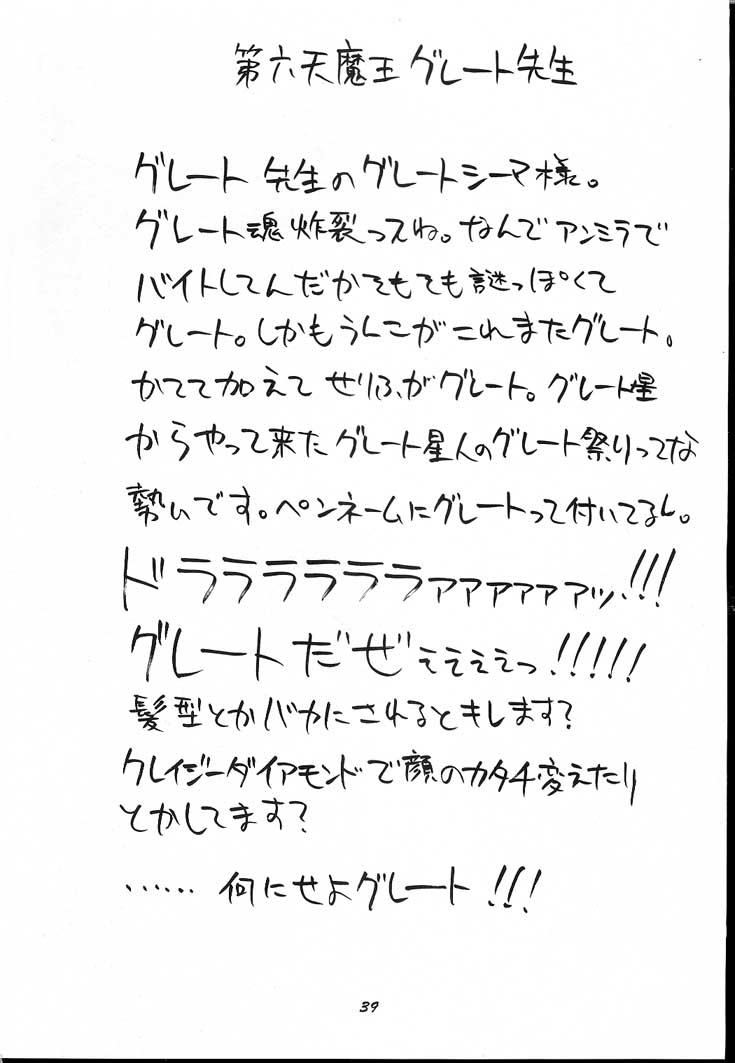 第六天魔王グレート先生
グレート先生のグレートシーマ様。
グレート魂炸裂っスね。なんでアンミラで
バイトしてんだかとてもとても謎っぽくて
グレート。しかもうんこがこれまたグレート。
かてて加えてせりふがグレート。グレート星
からやって来たグレート星人のグレート祭りってな
勢いです。ペンネームにグレートって付いてるし。
ドラララララララァァァァァァッ!!!
グレートだぜぇぇぇぇっ!!!!!
髪型とかバカにされるとキレます?
クレイジーダイアモンドで顔のカタチ変えたり
とかしてます?
……何にせよグレート!!!
39